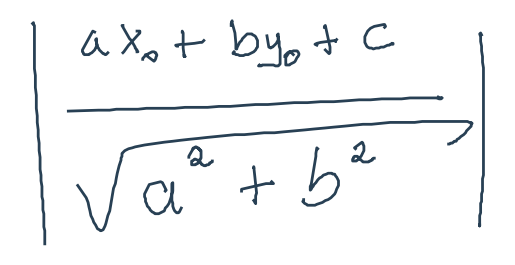 | ax₀ + by₀ + c |
√a² + b²